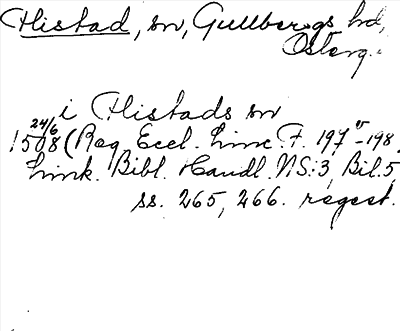 Flistad, sn, Gullbergs hd,
Österg.
i Flistads sn
24/6
1508 (Reg. Eccl. Linc. F. 197v-198,
Link. Bibl. Handl. N.S:3, Bil. 5,
ss. 265, 266. regest.